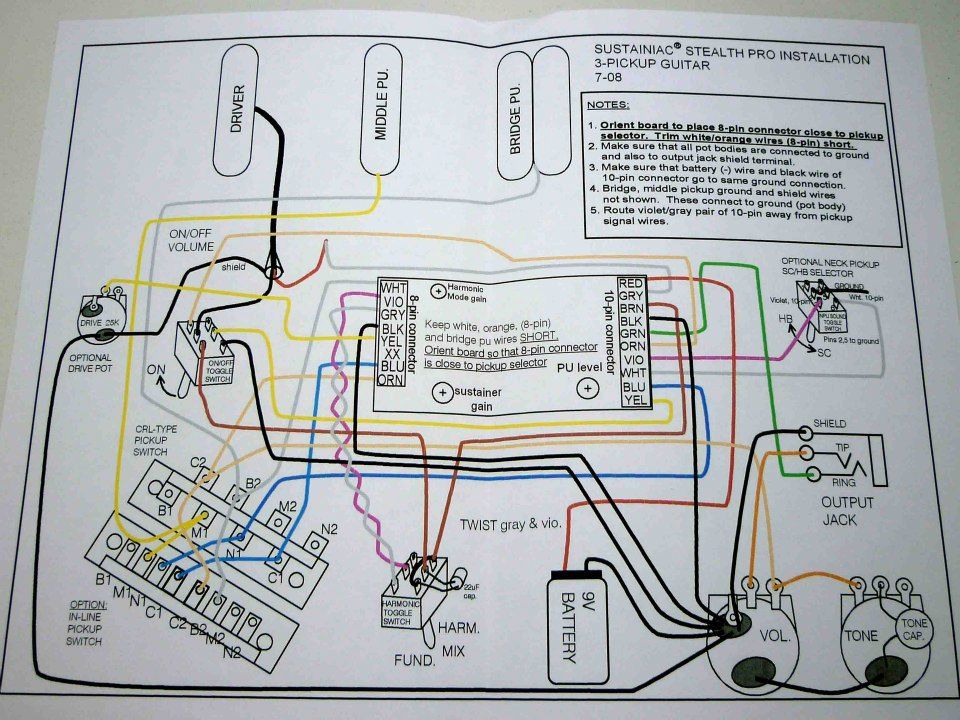 SUSTAINIAC® STEALTH PRO INSTALLATION
3-PICKUP GUITAR
7-08
NOTES:
1. Orient board to place 8-pin connector close to pickup
selector. Trim white/orange wires (8-pin) short.
2. Make sure that all pot bodies are connected to ground
and also to output jack shield terminal.
3. Make sure that battery (-) wire and black wire of
10-pin connector go to same ground connection.
4. Bridge, middle pickup ground and shield wires
not shown. These connect to ground (pot body)
5. Route violet/gray pair of 10-pin away from pickup
signal wires.
DRIVER
MIDDLE PU.
BRIDGE PU.
ON/OFF
VOLUME
shield
DRIVE 25K
OPTIONAL
DRIVE POT
ON
ON/OFF
TOGGLE
SWITCH
WHT
VIO
GRY
BLK
YEL
XX
BLU
ORN
8-pin connector
Harmonic
Mode gain
Keep white, orange, (8-pin)
and bridge pu wires SHORT.
Orient board so that 8-pin connector
is close to pickup selector
sustainer
gain
PU level
10-pin connector
RED
GRY
BRN
BLK
GRN
ORN
VIO
WHT
BLU
YEL
OPTIONAL NECK PICKUP
SC/HB SELECTOR
GROUND
Violet, 10-pin
Wht. 10-pin
HB
NPU SOUND
TOGGLE
SWITCH
Pins 2,5 to ground
SC
CRL-TYPE
PICKUP
SWITCH
C2
B2
B1
M2
M1
N2
N1
C1
B1
M1
N1
C1
C2
B2
M2
N2
OPTION:
IN-LINE
PICKUP
SWITCH
TWIST gray & vio.
HARMONIC
TOGGLE
SWITCH
.22uF
cap.
HARM.
MIX
FUND.
9V
BATTERY
SHIELD
TIP
RING
OUTPUT
JACK
VOL.
TONE
TONE
CAP.